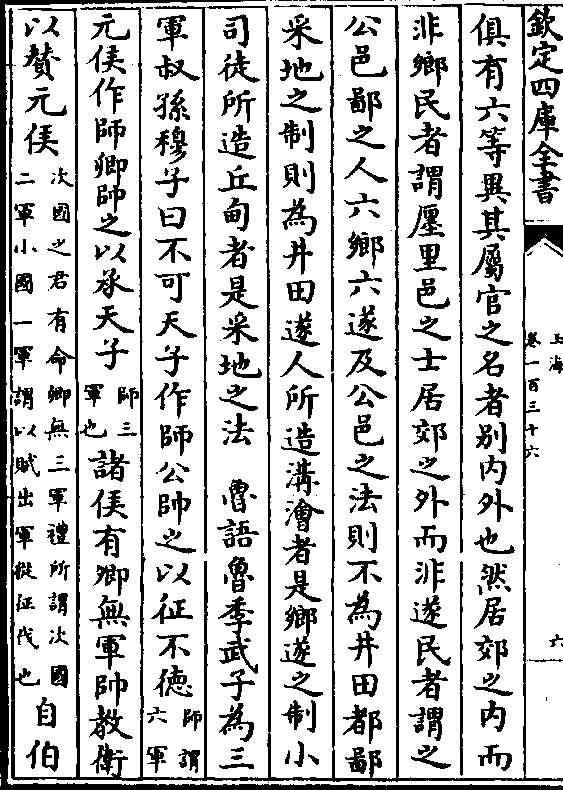 欽定四庫全書
玉海
卷一百三十六
六
俱有六等異其屬官之名者别内外也然居郊之内而
非鄉民者謂廛里邑之士居郊之外而非遂民者謂之
公邑鄙之人六鄉六遂及公邑之法則不為井田都鄙
采地之制則為井田遂人所造溝澮者是鄉遂之制小
司徒所造丘甸者是采地之法　魯語魯季武子為三
軍叔孫穆子曰不可天子作師公帥之以征不德師謂六軍
元侯作師卿帥之以承天子師三軍也諸侯有卿無軍帥教衛
以賛元侯次國之君有命卿無三軍禮所謂次國二軍小國一軍謂以賦出軍從征伐也自伯